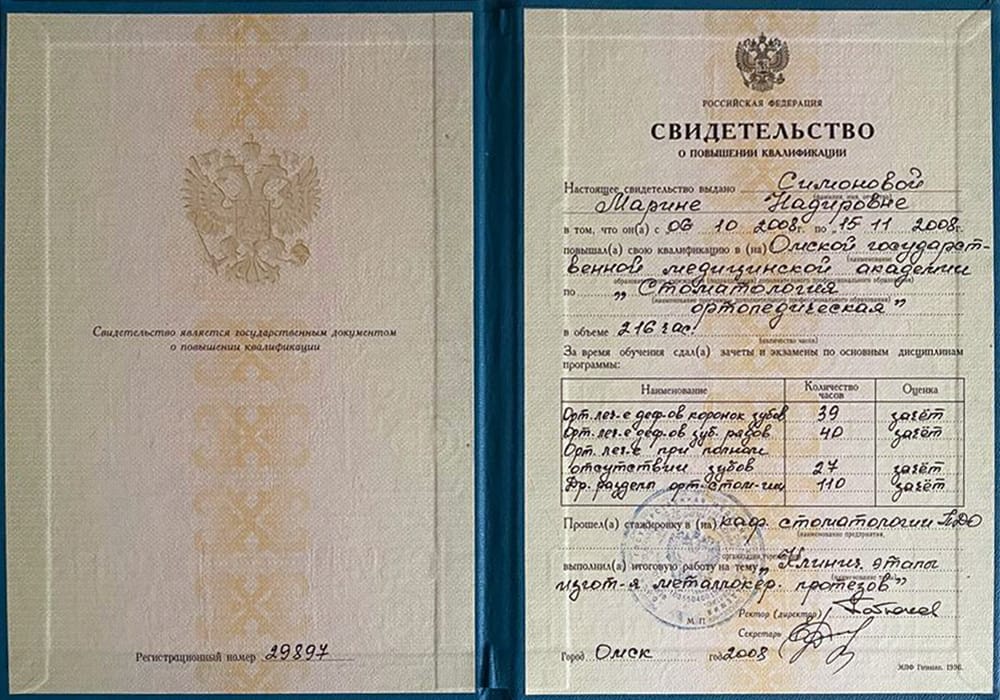 Свидетельство является государственным документом
о повышении квалификации
Регистрационный номер 29897
РОССИЙСКАЯ ФЕДЕРАЦИЯ
СВИДЕТЕЛЬСТВО
О ПОВЫШЕНИИ КВАЛИФИКАЦИИ
Настоящее свидетельство выдано Симоновой
(фамилия, имя, отчество)
Марине Надировне
в том, что он(а) с „06 10 2008г. по „15 11 2008г.
повышал(а) свою квалификацию в (на) Омской государст-
(наименование
венной медицинской академии
образовательного учреждения (подразделения) дополнительного профессионального образования)
по „Стоматология
(наименование программы дополнительного профессионального образования)
ортопедическая"
в объеме 216 час.
(количество часов)
За время обучения сдал(а) зачеты и экзамены по основным дисциплинам
программы:
Наименование Количество часов Оценка
Орт. леч-е деф-ов коронок зубов 39 зачёт
Орт. леч-е деф-ов зуб. рядов 40 зачёт
Орт. леч-е при полном
отсутствии зубов 27 зачёт
Др. разделы орт. стом-гии 110 зачёт
Прошел(а) стажировку в (на) каф. стоматологии ПДО
(наименование предприятия,
организации, учреждения)
выполнил(а) итоговую работу на тему „Клинич. этапы
(наименование темы)
изгот-я металлокер. протезов"
Ректор (директор)
М. П.
Секретарь
Город Омск год 2008
МПФ Гознака. 1996.